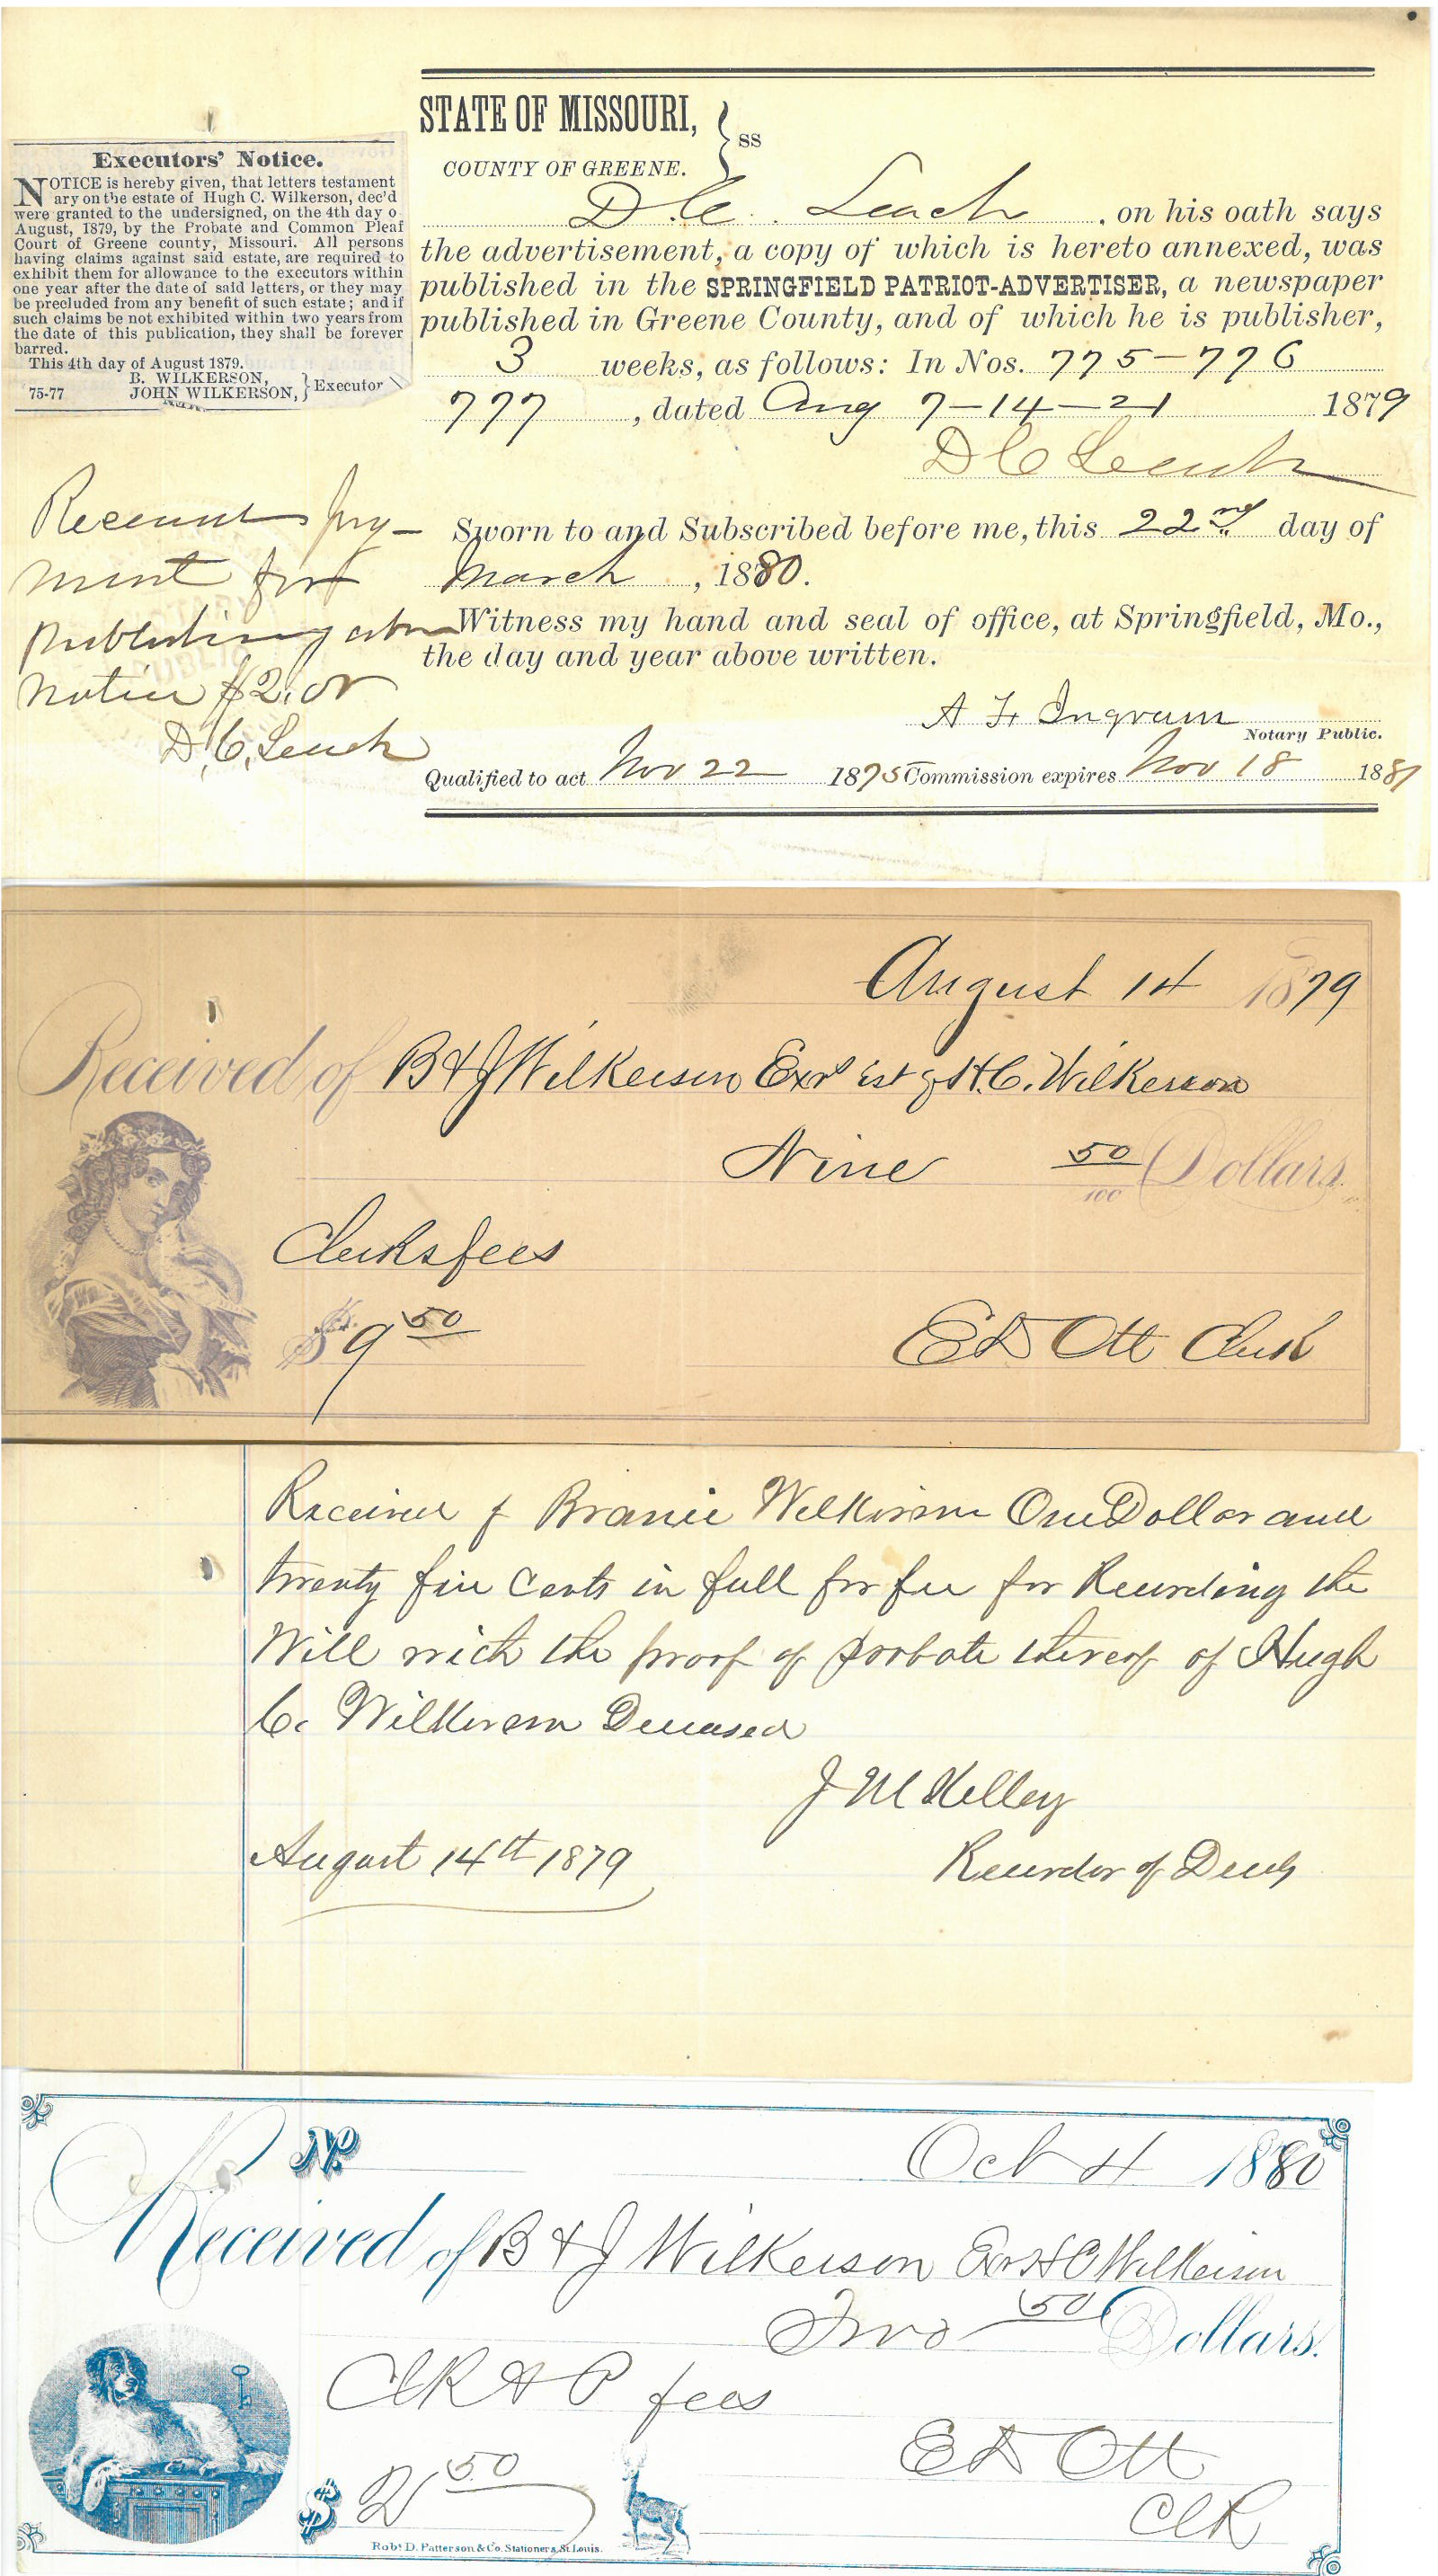 Executors' Notice.
NOTICE is hereby given, that letters testament
ary on the estate of Hugh C. Wilkerson, dec'd
were granted to the undersigned, on the 4th day o
August, 1879, by the Probate and Common Pleaf
Court of Greene county, Missouri. All persons
having claims against said estate, are required to
exhibit them for allowance to the executors within
one year after the date of said letters, or they may
be precluded from any benefit of such estate; and if
such claims be not exhibited within two years from
the date of this publication, they shall be forever
barred.
This 4th day of August 1879.
B. WILKERSON,
JOHN WILKERSON, } Executor
75-77
STATE OF MISSOURI, } ss
COUNTY OF GREENE.
D. C. Leach, on his oath says
the advertisement, a copy of which is hereto annexed, was
published in the SPRINGFIELD PATRIOT-ADVERTISER, a newspaper
published in Greene County, and of which he is publisher,
3 weeks, as follows: In Nos. 775-776
777, dated Aug 7-14-21 1879
D C Leach
Sworn to and Subscribed before me, this 22nd day of
March, 1880.
Witness my hand and seal of office, at Springfield, Mo.,
the day and year above written.
A F Ingram
Notary Public.
Qualified to act Nov 22 1875 Commission expires Nov 18 1881
Received pay-
ment for
publishing
notice $2.00
D, C, Leach
August 14 1879
Received of B & J Wilkerson Exrs Est of H. C. Wilkerson
Nine 50/100 Dollars.
Clerks fees
$9 50
E D Ott Clerk
Received of Wilkerson One Dollar and
twenty five Cents in full for fee for Recording the
Will with the proof of probate thereof of Hugh
C. Wilkerson Deceased
J M Kelley
August 14th 1879
Recorder of Deeds
No. Oct 4 1880
Received of B & J Wilkerson Exr H C Wilkerson
Two 50 Dollars.
Clk & P fees
$2 50
E D Ott
Clk
Robt D. Patterson & Co. Stationers, St. Louis.